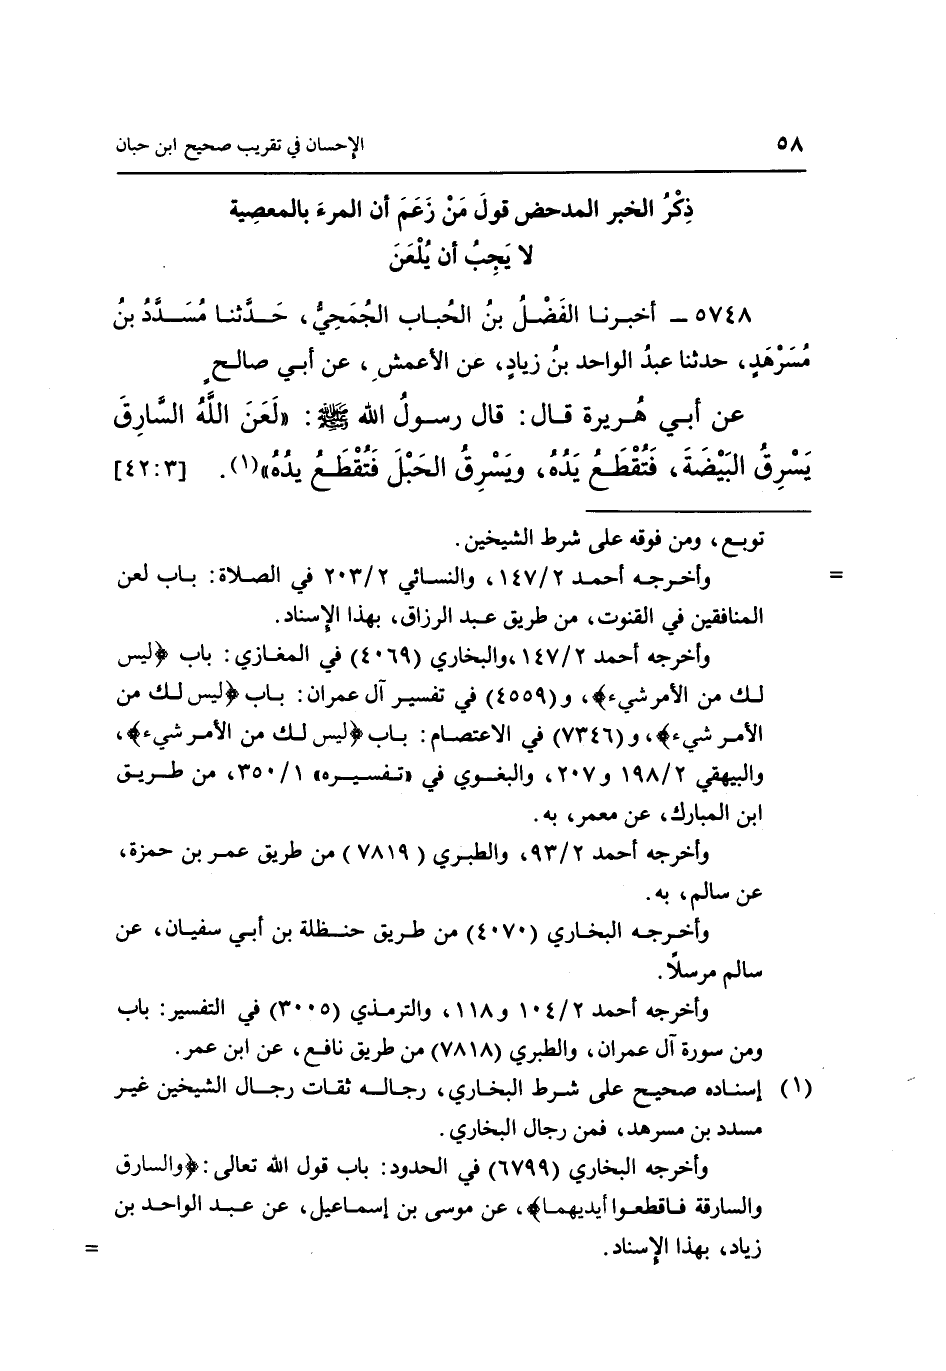 ٥٨ الإحسان في تقريب صحيح ابن حبان
ذِكْرُ الخبر المدحض قولَ مَنْ زَعَمَ أن المرءَ بالمعصية
لا يَجِبُ أن يُلْعَنَ
٥٧٤٨ ـ أخبرنا الفَضْلُ بنُ الحُباب الجُمَحِيُّ، حَدَّثنا مُسَدَّدُ بنُ
مُسَرْهَدٍ، حدثنا عبدُ الواحد بنُ زيادٍ، عن الأعمشِ، عن أبي صالحٍ
عن أبي هُريرة قال: قال رسولُ الله ﷺ: «لَعَنَ اللَّهُ السَّارِقَ
يَسْرِقُ البَيْضَةَ، فَتُقْطَعُ يَدُهُ، ويَسْرِقُ الحَبْلَ فَتُقْطَعُ يدُهُ»(١). [٤٢:٣]
توبع، ومن فوقه على شرط الشيخين.
= وأخرجه أحمد ١٤٧/٢، والنسائي ٢٠٣/٢ في الصلاة: باب لعن
المنافقين في القنوت، من طريق عبد الرزاق، بهذا الإسناد.
وأخرجه أحمد ١٤٧/٢،والبخاري (٤٠٦٩) في المغازي: باب ﴿ليس
لك من الأمر شيء﴾، و(٤٥٥٩) في تفسير آل عمران: باب ﴿ليس لك من
الأمر شيء﴾، و(٧٣٤٦) في الاعتصام: باب ﴿ليس لك من الأمر شيء﴾،
والبيهقي ١٩٨/٢ و٢٠٧، والبغوي في «تفسيره» ٣٥٠/١، من طريق
ابن المبارك، عن معمر، به.
وأخرجه أحمد ٩٣/٢، والطبري (٧٨١٩) من طريق عمر بن حمزة،
عن سالم، به.
وأخرجه البخاري (٤٠٧٠) من طريق حنظلة بن أبي سفيان، عن
سالم مرسلًا.
وأخرجه أحمد ١٠٤/٢ و١١٨، والترمذي (٣٠٠٥) في التفسير: باب
ومن سورة آل عمران، والطبري (٧٨١٨) من طريق نافع، عن ابن عمر.
(١) إسناده صحيح على شرط البخاري، رجاله ثقات رجال الشيخين غير
مسدد بن مسرهد، فمن رجال البخاري.
وأخرجه البخاري (٦٧٩٩) في الحدود: باب قول الله تعالى: ﴿والسارق
والسارقة فاقطعوا أيديهما﴾، عن موسى بن إسماعيل، عن عبد الواحد بن
زياد، بهذا الإسناد. =